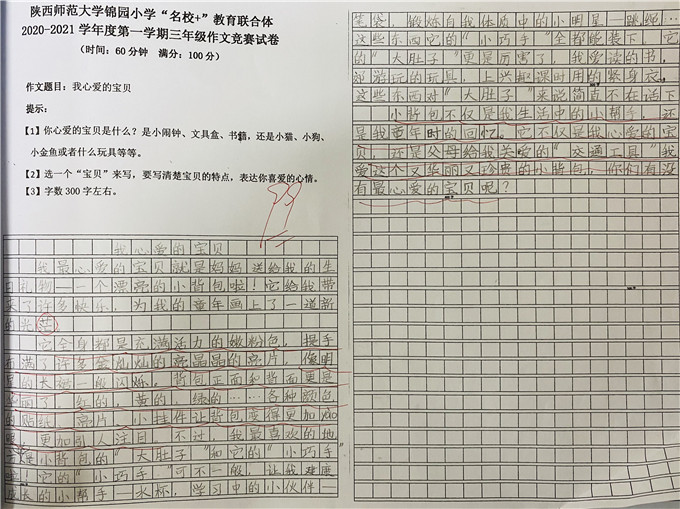 陕西师范大学锦园小学“名校+”教育联合体
2020-2021学年度第一学期三年级作文竞赛试卷
（时间：60分钟 满分：100分）
作文题目：我心爱的宝贝
提示：
【1】你心爱的宝贝是什么？是小闹钟、文具盒、书籍，还是小猫、小狗、
小金鱼或者什么玩具等等。
【2】选一个“宝贝”来写，要写清楚宝贝的特点，表达你喜爱的心情。
【3】字数300字左右。
99
我心爱的宝贝
我最心爱的宝贝就是妈妈送给我的生
日礼物——一个漂亮的小背包啦！它给我带
来了许多快乐，为我的童年画上了一道新
的光芒。
它全身都是充满活力的嫩粉色，提手
布满了许多金灿灿的亮晶晶的亮片，像明
星的大裙一般闪烁。背包正面和背面更是
了，红的，黄的，绿的……各种颜色
的贴纸，亮片，小挂件让背包变得更加
，更加引人注目。不过，我最喜欢的地
方是小背包的“大肚子”和它的“小巧手”
啦！它的“小巧手”可不一般，让我
成长的小帮手—水杯，学习中的小伙伴—
笔袋，锻炼自我体质中的小明星—跳绳…
这些东西它的“小巧手”全都能装下，它
的“大肚子”更是厉害了，我爱读的书，
郊游玩的玩具，上兴趣课时用的紧身衣，
这些东西对“大肚子”来说简直不在话下
小背包不仅是我生活中的小帮手，还
是我童年时的回忆。它不仅是我心爱的宝
贝，还是父母给我关爱的“交通工具”我
爱这个又华丽又珍贵的小背包，你们有没
有最心爱的宝贝呢？